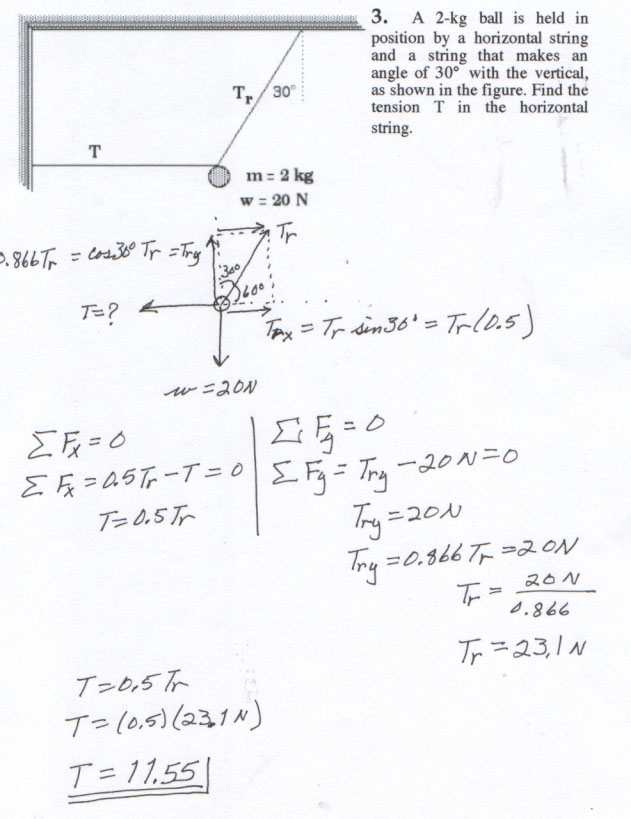 3. A 2-kg ball is held in
position by a horizontal string
and a string that makes an
angle of 30° with the vertical,
as shown in the figure. Find the
tension T in the horizontal
string.
Tr
30°
T
m = 2 kg
w = 20 N
Tr
0.866Tr = cos30° Tr = Try
30°
60°
T=?
Trx = Tr sin30° = Tr(0.5)
w = 20N
ΣFx = 0
ΣFx = 0.5Tr - T = 0
T = 0.5Tr
ΣFy = 0
ΣFy = Try - 20N = 0
Try = 20N
Try = 0.866 Tr = 20N
Tr = 20 N / 0.866
Tr = 23.1 N
T = 0.5 Tr
T = (0.5)(23.1 N)
T = 11.55